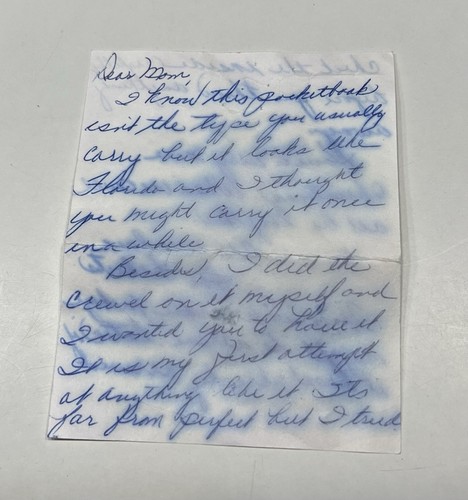 Dear Mom,
I know this pocketbook
isn't the type you usually
carry but it looks like
Florida and I thought
you might carry it once
in a while
Besides, I did the
crewel on it myself and
I wanted you to have it
It is my first attempt
at anything like it Its
far from perfect but I tried